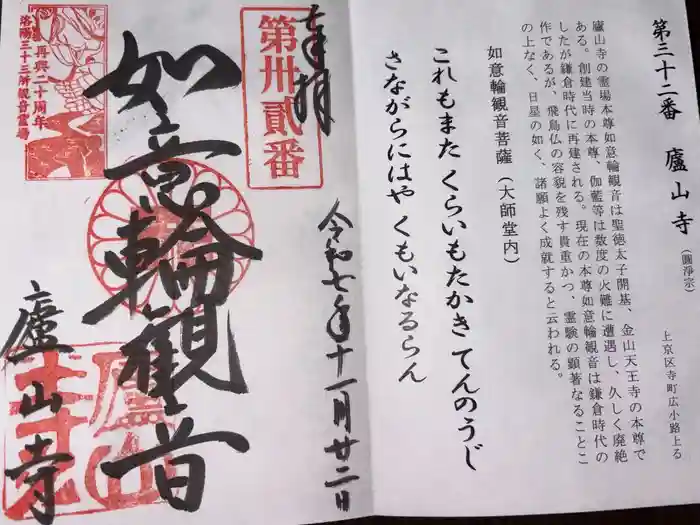 第三十二番　廬山寺（圓浄宗）
上京区寺町広小路上る
廬山寺の霊場本尊如意輪観音は聖徳太子開基、金山天王寺の本尊で
ある。創建当時の本尊、伽藍等は数度の火難に遭遇し、久しく廃絶
したが鎌倉時代に再建される。現在の本尊如意輪観音は鎌倉時代の
作であるが、飛鳥仏の容貌を残す貴重かつ、霊験の顕著なることこ
の上なく、日星の如く、諸願よく成就すると云われる。
如意輪観音菩薩（大師堂内）
これもまた くらいもたかき てんのうじ
さながらにはや くもいなるらん
奉拝
令和七年十一月廿二日
第卅貳番
如意輪観音
再興二十周年
洛陽三十三所観音霊場
廬山寺
廬山寺